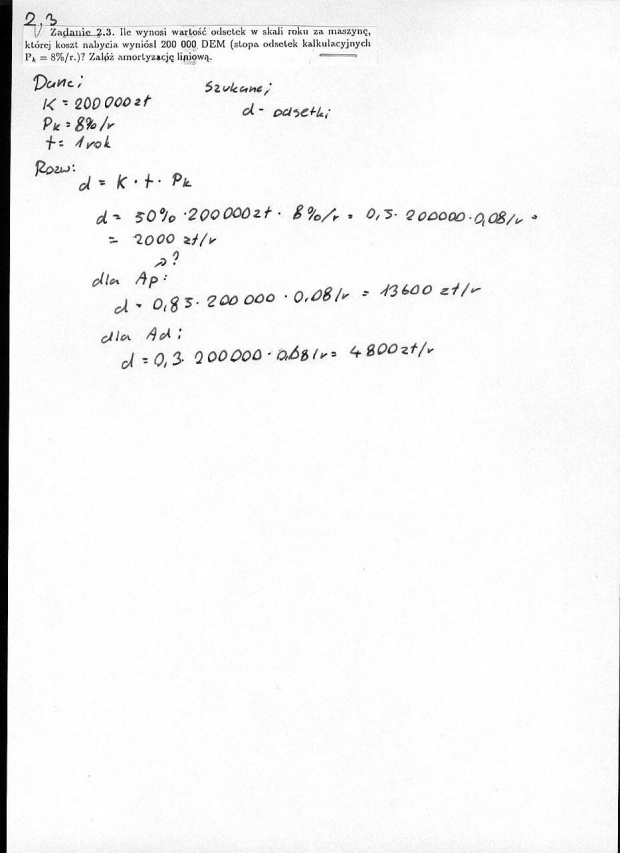 2,3
Zadanie 2.3. Ile wynosi wartość odsetek w skali roku za maszynę,
której koszt nabycia wyniósł 200 000 DEM (stopa odsetek kalkulacyjnych
Pk = 8%/r.)? Załóż amortyzację liniową.
Dane; Szukane;
K = 200 000 zł d - odsetki
Pk = 8%/r
t = 1 rok
Rozw:
d = K · t · Pk
d = 50% · 200000zł · 8%/r = 0,5 · 200000 · 0,08/r =
= 2000 zł/r
?
dla Ap:
d = 0,85 · 200 000 · 0,08/r = 13600 zł/r
dla Ad;
d = 0,3 · 200000 · 0,08/r = 4800zł/r